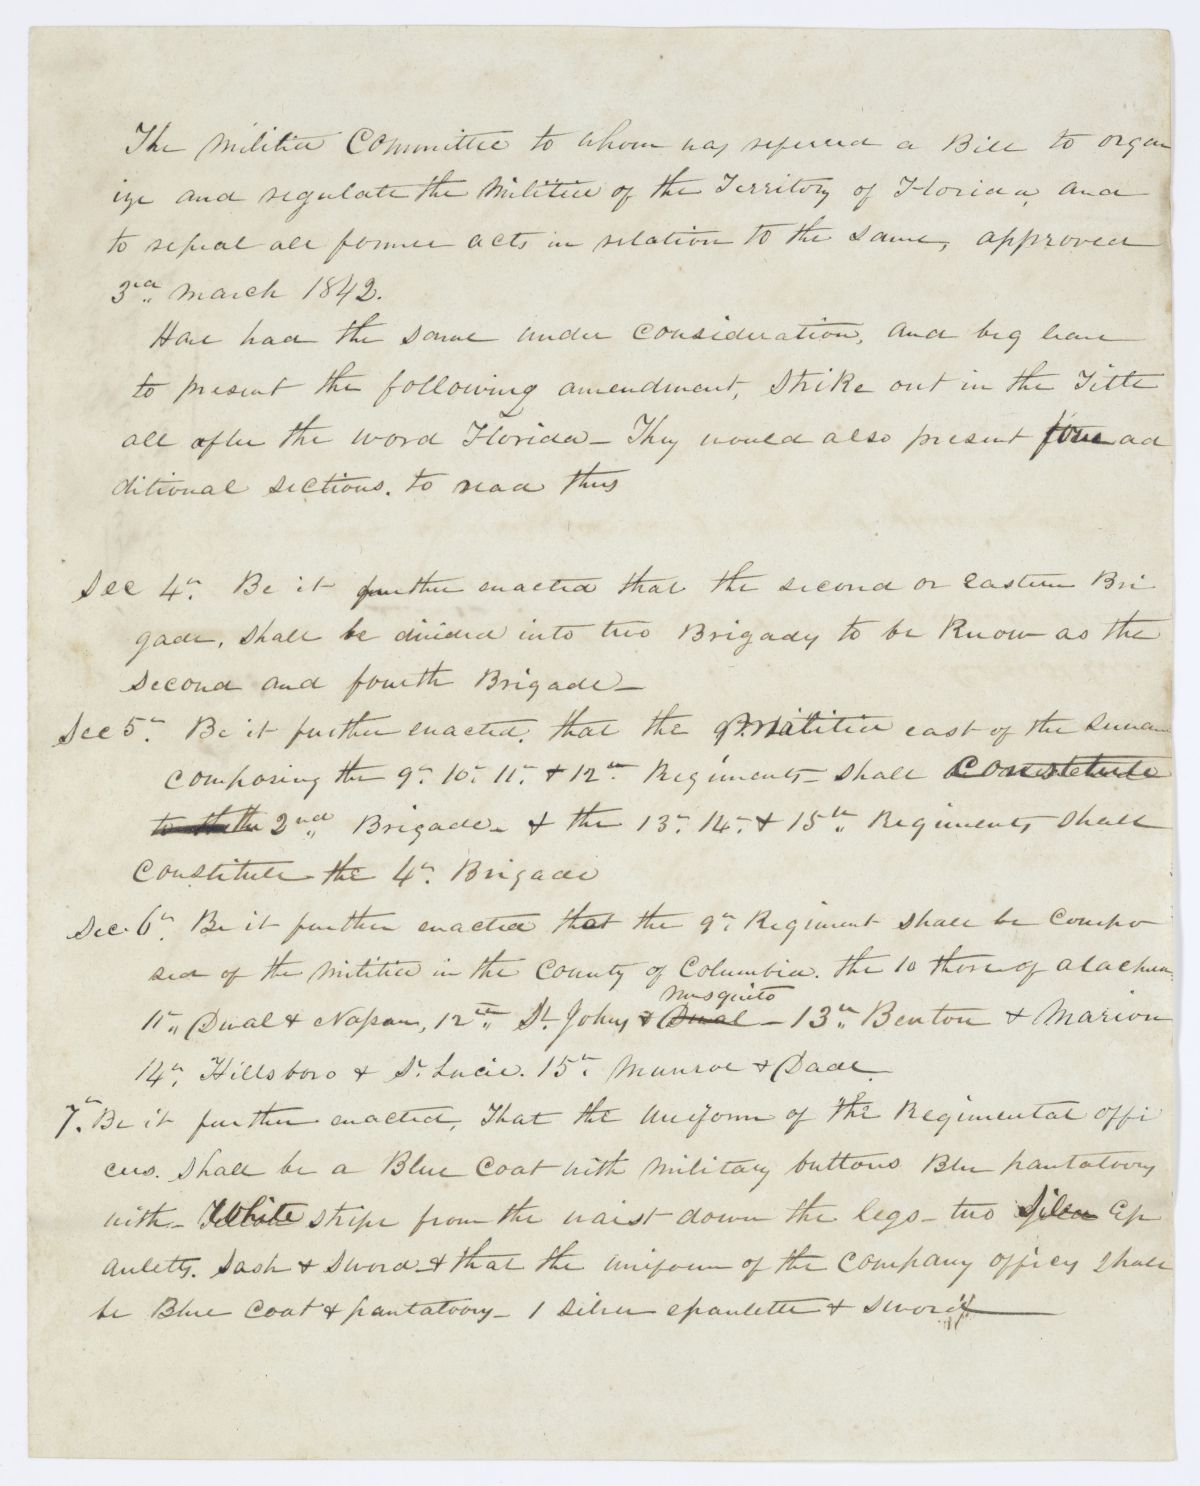 The Militia Committee to whom was refered a Bill to organ
ize and regulate the Militia of the Territory of Florida, and
to repeal all former acts in relation to the same, approved
3rd March 1842.
Have had the same under consideration, and beg leave
to present the following amendment, strike out in the Title
all after the word Florida – They would also present four ad
ditional sections. to read thus
Sec 4th. Be it further enacted that the second or Eastern Bri
gade, shall be divided into two Brigades to be Know as the
Second and fourth Brigade –
Sec 5th. Be it further enacted, that the Militia east of the Suwan
composing the 9th 10th 11th & 12th Regiments – shall Constitute
the 2nd Brigade – & the 13th 14th & 15th Regiments shall
Constitute the 4th Brigade
Sec. 6th. Be it further enacted that the 9th Regiment shall be Compo
sed of the Militia in the County of Columbia. the 10 those of Alachua
11th Dual & Nassau, 12th St. Johns & Dual Musquito – 13th Benton & Marion
14th. Hillsboro & St Lucie. 15th. Munroe & Dade.
7th. Be it further enacted, That the Uniform of the Regimental offi
cers. shall be a Blue Coat with Military buttons Blue pantaloons
with – White stripe from the waist down the legs – two Silver Ep
auletts. Sash & Sword – & that the uniform of the Company officers shall
be Blue Coat & pantaloons – 1 silver epaulette & Sword